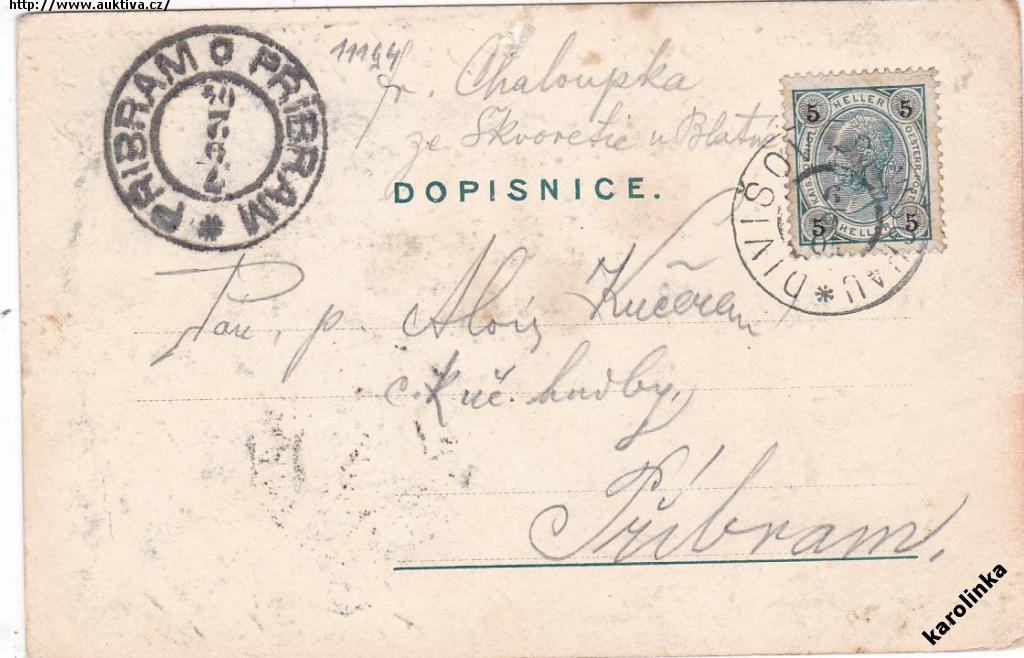 http://www.auktiva.cz/
PŘIBRAM O PŘIBRAM *
11194
Fr. Chaloupka
ze Škvoretic u Blatné
DOPISNICE.
5 HELLER 5
5 HELLER 5
DIVIŠOV
*
Pan, p. Alois Kučera
c. kuč. hudby,
Příbram,
karolinka